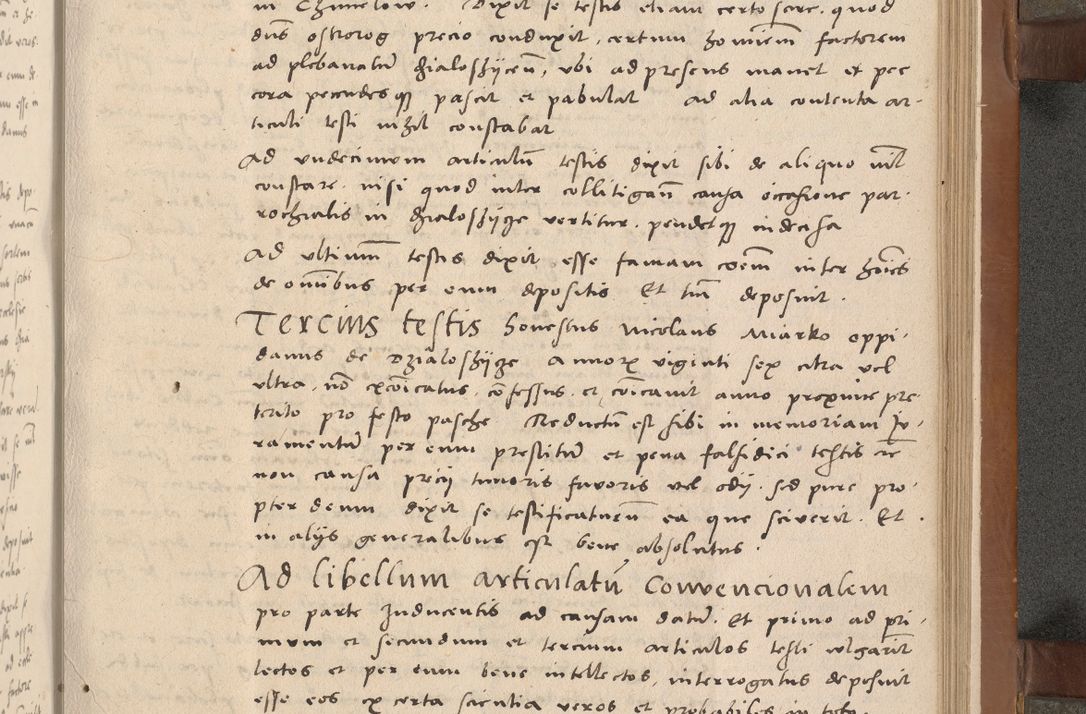 in Chmelow. Dixit se testis etiam certo scire, quod
dns ostrorog precio conduxit, certum hominem factorem
ad plebanatum dzialoshicen, vbi ad presens manet et pec
cora pecudesq pascit et pabulat ad alia contenta ar-
ticuli testi nihil constabat
Ad vndecimum articulum testis dixit sibi de aliquo nil
constare. nisi quod inter collitigan causa occasione par-
rochialis in dzialoshijcze vertitur, pendetq indecisa
Ad vltimum testis dixit esse famam coem inter hoies
de omnibus per eum depositis Et tm deposuit.
Tercius testis honestus Nicolaus Miarko oppi-
danus de Dzialoshijcze annor viginti sex citra vel
vltra, no excoicatus, confessus, et coicauit anno proxime pre-
terito pro festo pasche Reductum est sibi in memoriam Ju-
ramentum per eum prestitum et pena falsidici testis etc
non causa precij timoris fauoris vel odij. sed pure pro-
pter deum dixit se testificaturum ea que sciuerit. Et
in alijs generalibus est bene absolutus.
Ad libellum articulatum Conuencionalem
pro parte Inducentis ad causam datum. Et primo ad pri-
mum et secundum et tercium articulos testi vlgarit
lectos et per eum bene intellectos, interrogatus deposuit
esse eos ex certa scientia veros et probabiles in toto.